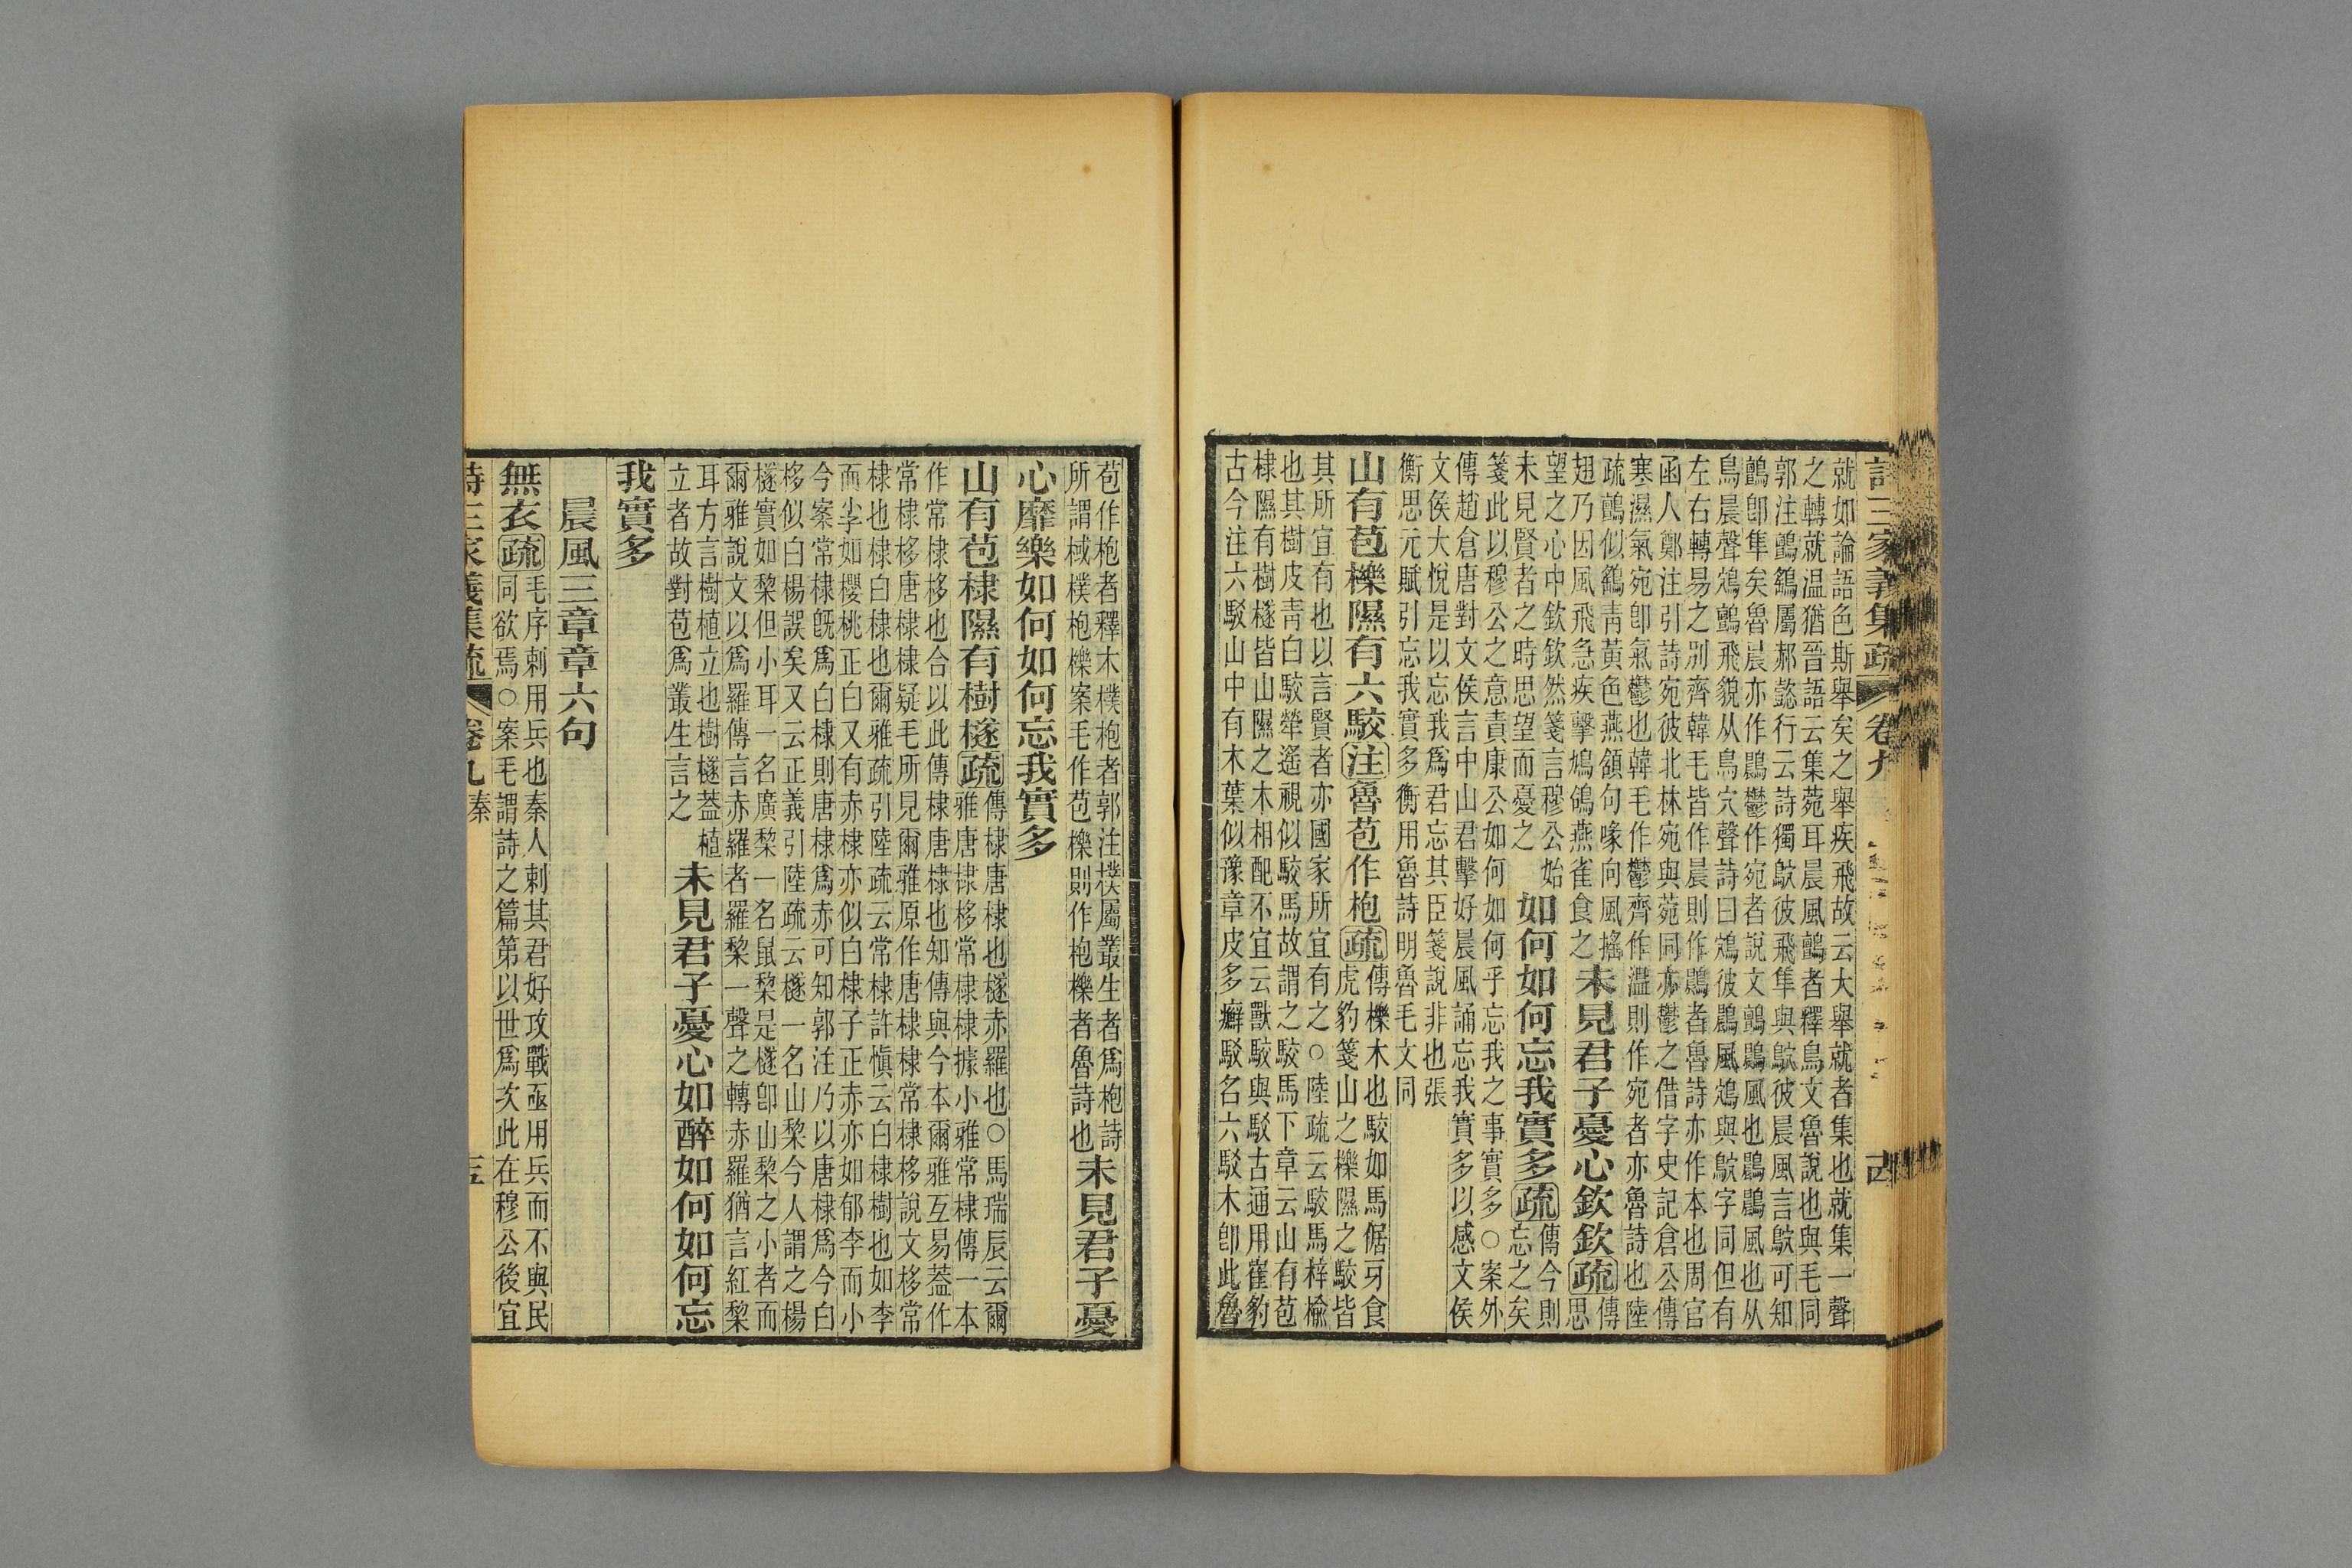 詩三家義集疏 卷九 十四
就如論語色斯舉矣之舉疾飛故云大舉就者集也就集一聲
之轉就溫猶晉語云集菀耳晨風鸇者釋鳥文魯說也與毛同
郭注鸇鷂屬郝懿行云詩獨鴥彼飛隼與鴥彼晨風言鴥可知
鸇卽隼矣魯晨亦作鷐鬱作宛者說文鸇鷐風也鷐鷐風也从
鳥晨聲鴆鸇飛貌从鳥穴聲詩曰鴆彼鷐風鴆與鴥字同但有
左右轉易之別齊韓毛皆作晨則作鷐者魯詩亦作本也周官
函人鄭注引詩宛彼北林宛與菀同亦鬱之借字史記倉公傳
寒濕氣宛卽氣鬱也韓毛作鬱齊作溫則作宛者亦魯詩也陸
疏鸇似鷂青黃色燕頷句喙向風搖
翅乃因風飛急疾擊鳩鴿燕雀食之 未見君子憂心欽欽 疏 傳思
望之心中欽欽然箋言穆公始
未見賢者之時思望而憂之 如何如何忘我實多 疏 傳今則忘之矣
箋此以穆公之意責康公如何如何乎忘我之事實多○案外
傳趙倉唐對文侯言中山君擊好晨風誦忘我實多以感文侯
文侯大悅是以忘我爲君忘其臣箋說非也張
衡思元賦引忘我實多衡用魯詩明魯毛文同
山有苞櫟隰有六駮 注 魯苞作枹 疏 傳櫟木也駮如馬倨牙食
虎豹箋山之櫟隰之駮皆
其所宜有也以言賢者亦國家所宜有之○陸疏云駮馬梓榆
也其樹皮青白駮犖遙視似駮馬故謂之駮馬下章云山有苞
棣隰有樹檖皆山隰之木相配不宜云獸駮與駁古通用崔豹
古今注六駁山中有木葉似豫章皮多癬駁名六駁木卽此魯
苞作枹者釋木樸枹者郭注樸屬叢生者爲枹詩
所謂棫樸枹櫟案毛作苞櫟則作枹櫟者魯詩也 未見君子憂
心靡樂如何如何忘我實多
山有苞棣隰有樹檖 疏 傳棣唐棣也檖赤羅也○馬瑞辰云爾
雅唐棣栘常棣棣據小雅常棣傳一本
作常棣栘也合以此傳棣唐棣也知傳與今本爾雅互易葢作
常棣栘唐棣棣疑毛所見爾雅原作唐棣棣常棣栘說文栘常
棣也棣白棣也爾雅疏引陸疏云常棣許愼云白棣樹也如李
而尖李如櫻桃正白又有赤棣亦似白棣子正赤亦如郁李而小
今案常棣旣爲白棣則唐棣爲赤可知郭注乃以唐棣爲今白
栘似白楊誤矣又云正義引陸疏云檖一名山棃今人謂之楊
檖實如棃但小耳一名廣棃一名鼠棃是檖卽山棃之小者而
爾雅說文以爲羅傳言赤羅者羅棃一聲之轉赤羅猶言紅棃
耳方言樹植立也樹檖葢植
立者故對苞爲叢生言之 未見君子憂心如醉如何如何忘
我實多
晨風三章章六句
無衣 疏 毛序刺用兵也秦人刺其君好攻戰亟用兵而不與民
同欲焉○案毛謂詩之篇第以世爲次此在穆公後宜
詩三家義集疏 卷九 秦 十五